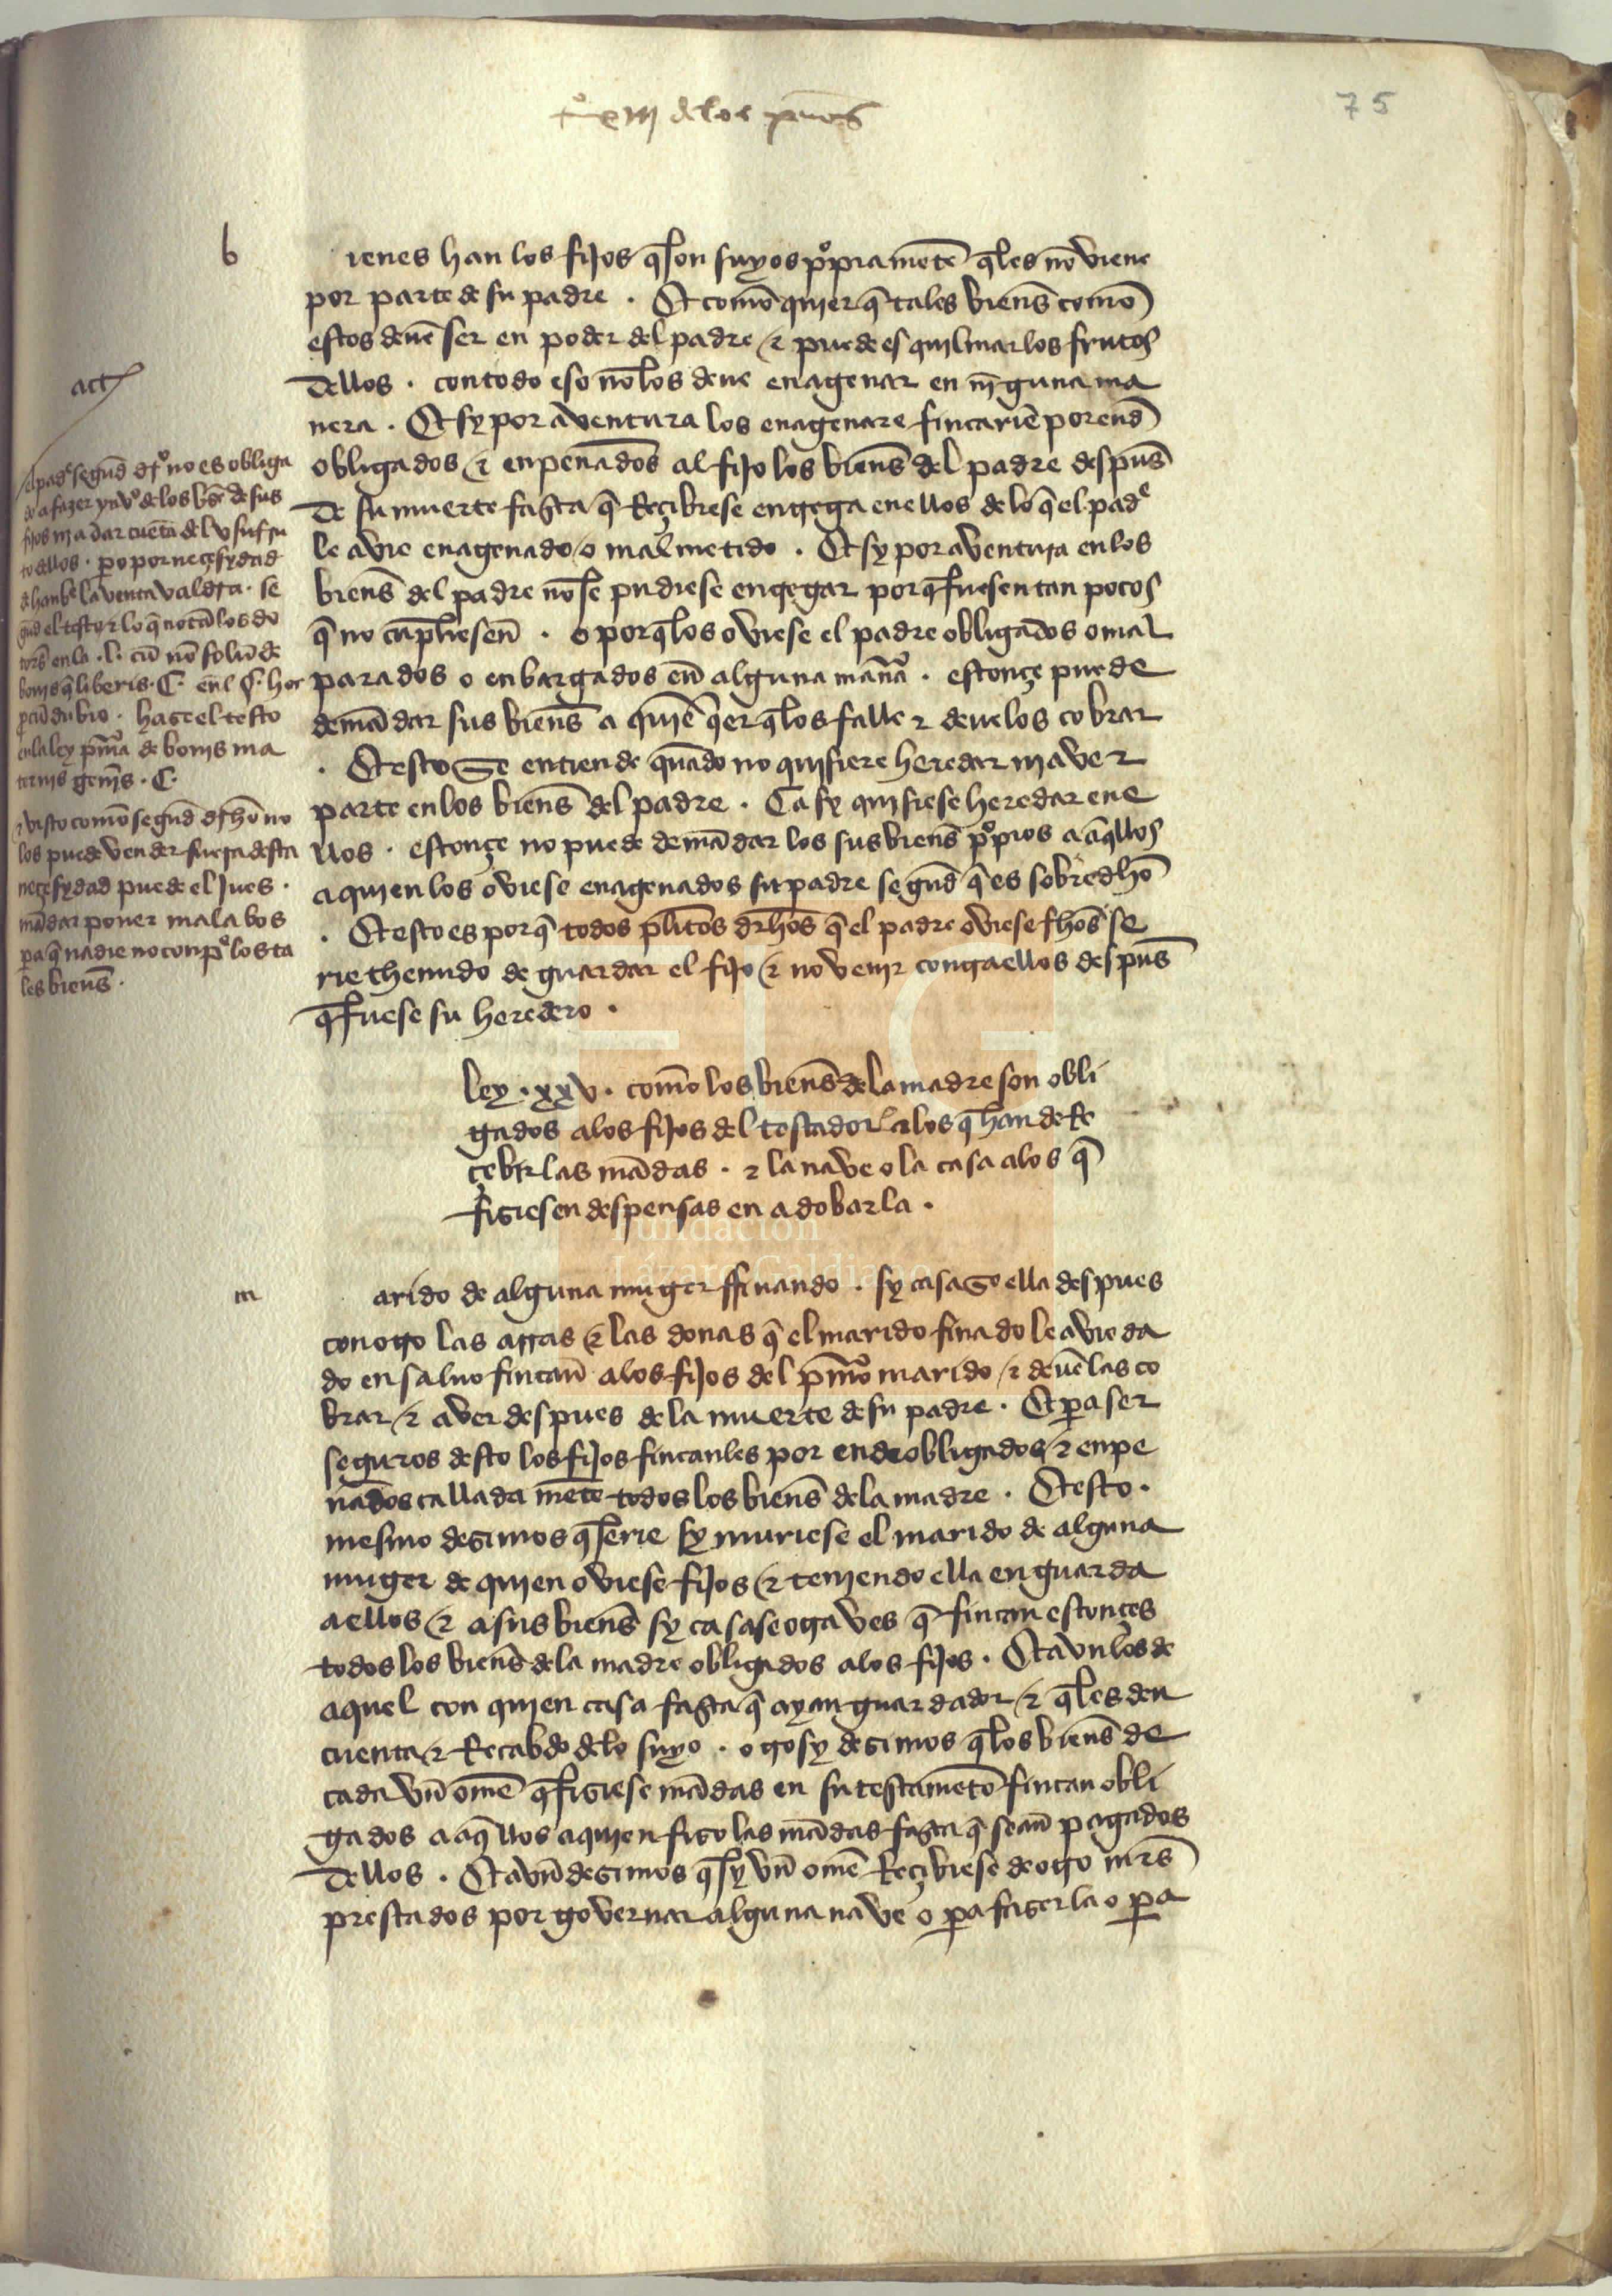 tº xiii de los peños
75
b
ienes han los fijos q̃ son suyos pºpiamẽte q̃ les nõ viene
por parte de su padre . Et comõ quier q̃ tales bienẽs comõ
estos deuẽ ser en poder del padre & puede esquilmar los frutos
dellos . con todo eso nõ los deue enagenar en nĩguna ma
nera . Et sy por aventura los enagenare fincariẽ por end̃
obligados & enpenados al fijo los bienẽs del padre despũs
de su muerte fasta q̃ Reçibiese entrega en ellos de lo q̃ el padᵉ
le avie enagenado o mal metido . Et sy por aventura en los
bienẽs del padre nõ se pudiese entregar por q̃ fuesen tan pocos
q̃ no cũpliesen̄ . o por q̃ los oviese el padre obligados o mal
parados o enbargados en̄ alguna man̄a . estonçe puede
demãdar sus bienẽs a quiẽ q̃er q̃ los falle & deue los cobrar
. Et esto se entiende quãdo no quisiere heredar ni aver
parte en los bienẽs del padre . Ca sy quisiese heredar en e
llos . estonçe no puede demãdar los sus bienẽs pºpios a aq̃llos
a quien los oviese enagenados su padre segũd q̃ es sobredh̃o
. Et esto es por q̃ todos pl̃itos derh̃os q̃ el padre oviese fh̃os se
rie thenudo de guardar el fijo & no venir contra ellos despũs
q̃ fuese su heredero .
act̃
el padᵉ segũd dr̃º no es obliga
do a fazer ynvº de los bẽs de sus
fijos ni a dar cuẽta del vsufru
to dellos . p̱o por neçesydad
la venta valdra . se
gũd el testo & lo q̃ notã los do
tor̃s en la . l. cũ nõ soluz de
bonis q̃ liberis . C. en l . hoc
p̱ciũ dubio . haze el testo
en la ley pĩma de bonis ma
ternis gen̄is . C.
visto comõ segũd dh̃o no
los puede vender fuera desta
neçesydad puede el jues .
mãdar poner mala bos
p̱a q̃ nadie no conpᵉ los ta
les bienẽs .
ley . xxv . comõ los bienẽs de la madre son obli
gados a los fijos del testador & a los q̃ han de Re
çebir las mãdas . & la nave o la casa a los q̃
fiziesen despensas en adobarla .
m
arido de alguna muger ffinando . sy casase ella despues
con otro las arras & las donas q̃ el marido finado le avie da
do en saluo fincan̄ a los fijos del pĩmo marido & deuẽ las co
brar & aver despues de la muerte de su padre . Et p̱a ser
seguros desto los fijos fincanles por ende obligados & enpe
nados callada mẽte todos los bienẽs de la madre . Et esto .
mesmo dezimos q̃ serie sy muriese el marido de alguna
muger de quien oviese fijos & teniendo ella en guarda
a ellos & a sus bienẽs sy casase otra ves q̃ fincan estonçes
todos los bienẽs de la madre obligados a los fijos . Et avn los de
aquel con quien casa fasta q̃ ayan guardador & q̃ les den
cuenta & Recabdo de lo suyo . otrosy dezimos q̃ los bienẽs de
cada vñ omẽ q̃ fiziese mãdas en su testamẽto fincan obli
gados a aq̃llos a quien fizo las mãdas fasta q̃ sean̄ pagados
dellos . Et avñ dezimos q̃ sy vñ omẽ Reçibiese de otro mr̃s
prestados por governar alguna nave o p̱a fazerla o p̱a
FLG
Fundación
Lázaro Galdiano